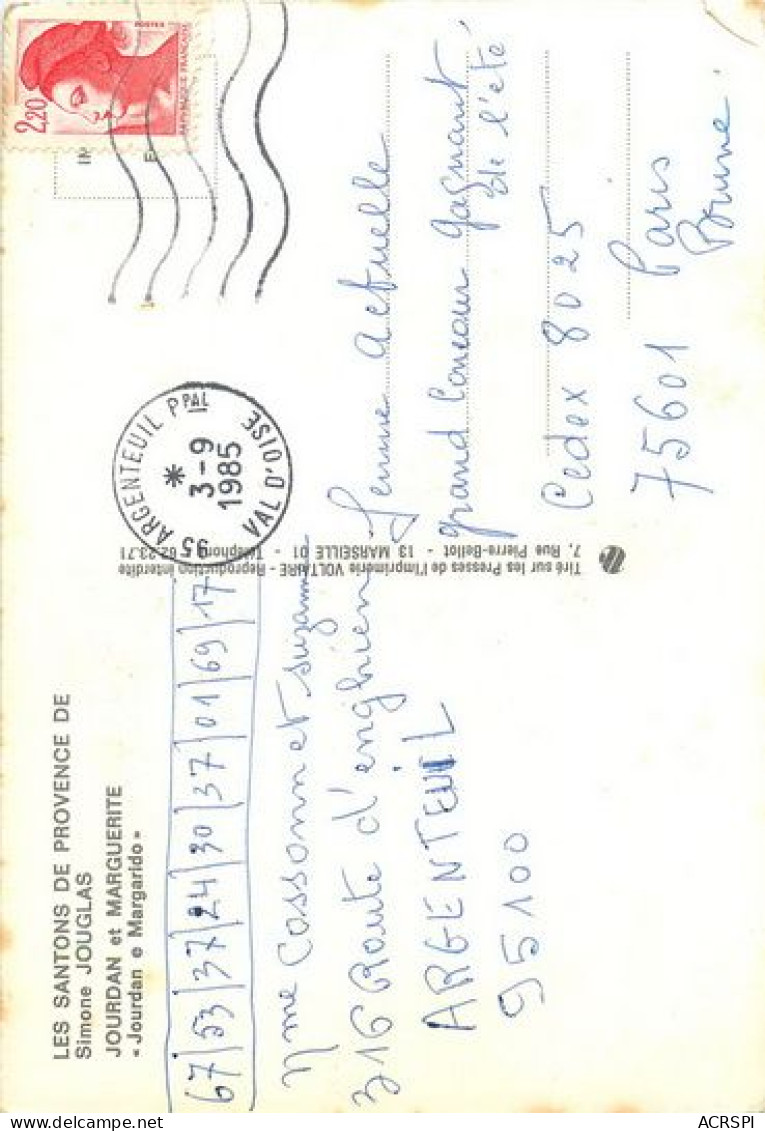 LES SANTONS DE PROVENCE DE
Simone JOUGLAS
JOURDAN et MARGUERITE
« Jourdan e Margarido »
67/53/37/24/30/37/01/69/17
Mme Cossonnet Suzanne
316 Route d'enghien
ARGENTEUIL
95100
Tiré sur les Presses de l'Imprimerie VOLTAIRE - Reproduction interdite
7, Rue Pierre-Bellot - 13 MARSEILLE 01 - Téléphone 62.23.71
2,20
POSTES
REPUBLIQUE FRANÇAISE
95 ARGENTEUIL PPAL
*
3-9
1985
VAL D'OISE
femme actuelle
grand Concour gagnant
de l'été
Cedex 8025
75601 Paris
Brune.
ACRSPI